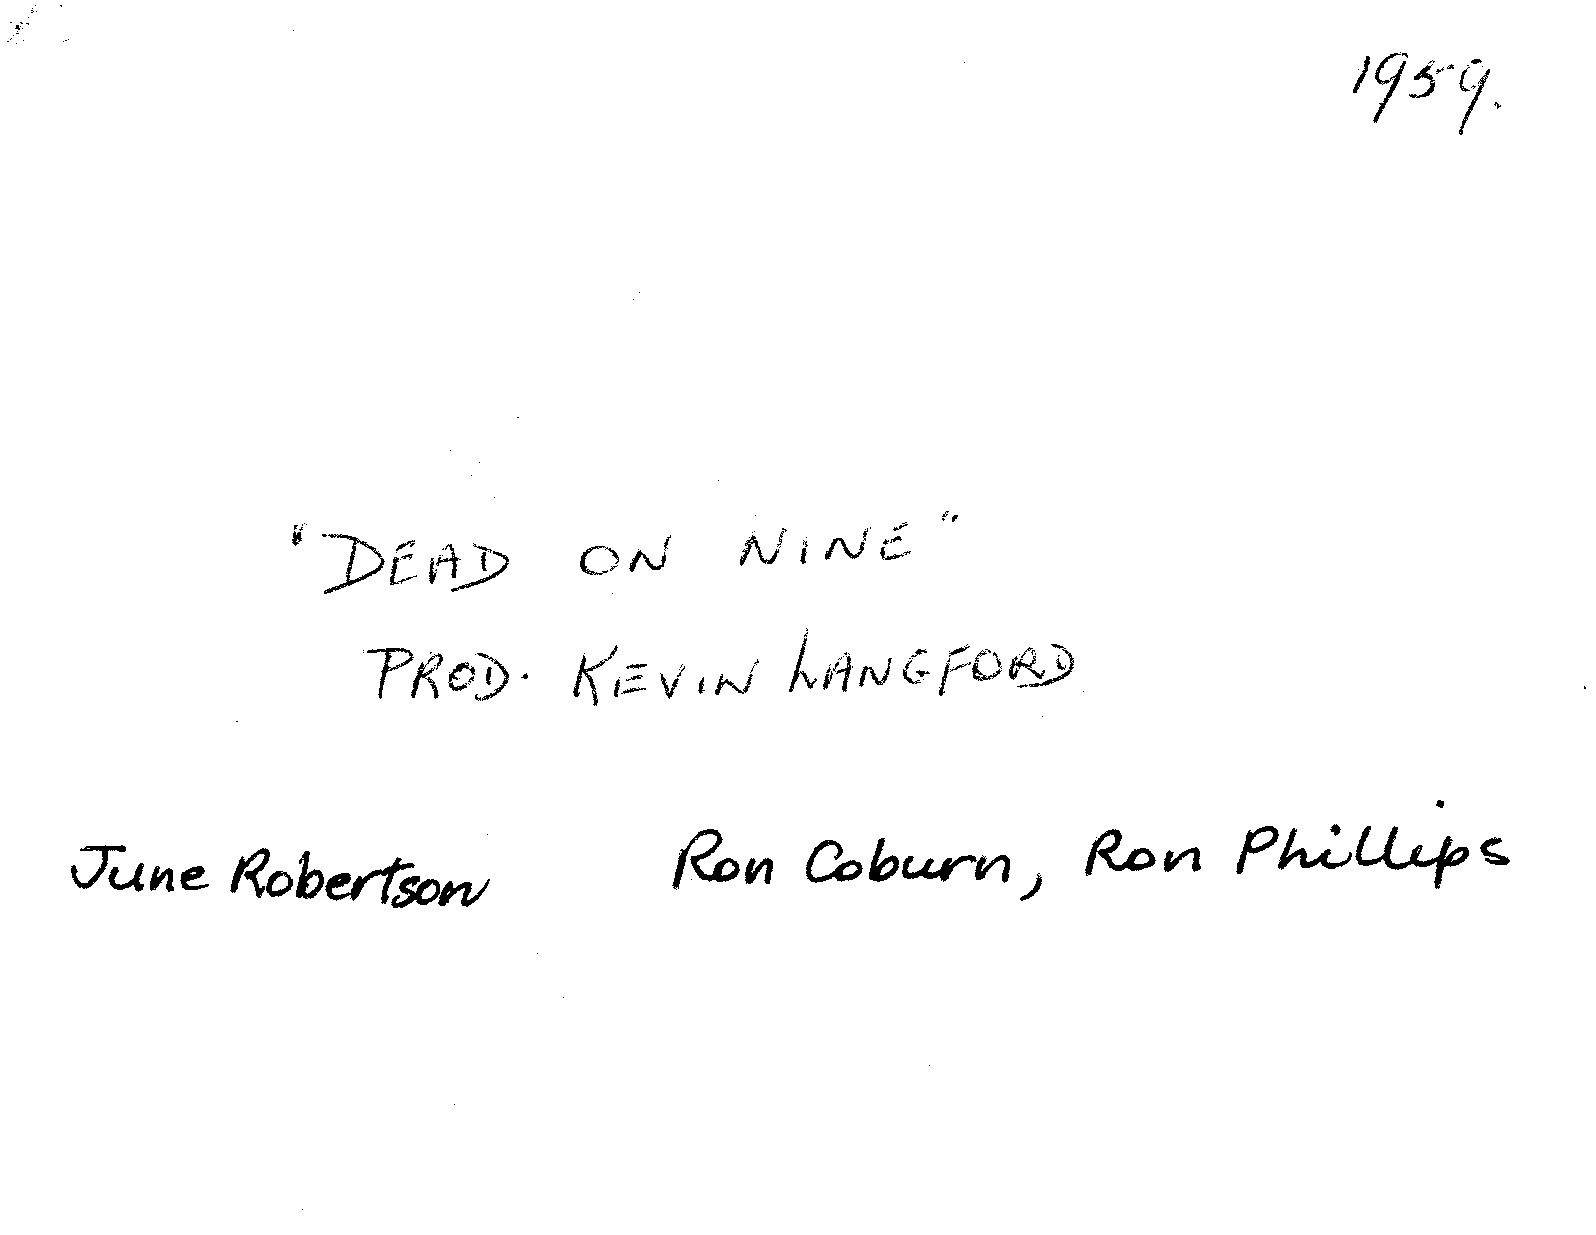 1959.
"DEAD ON NINE"
PROD. KEVIN LANGFORD
June Robertson Ron Coburn, Ron Phillips